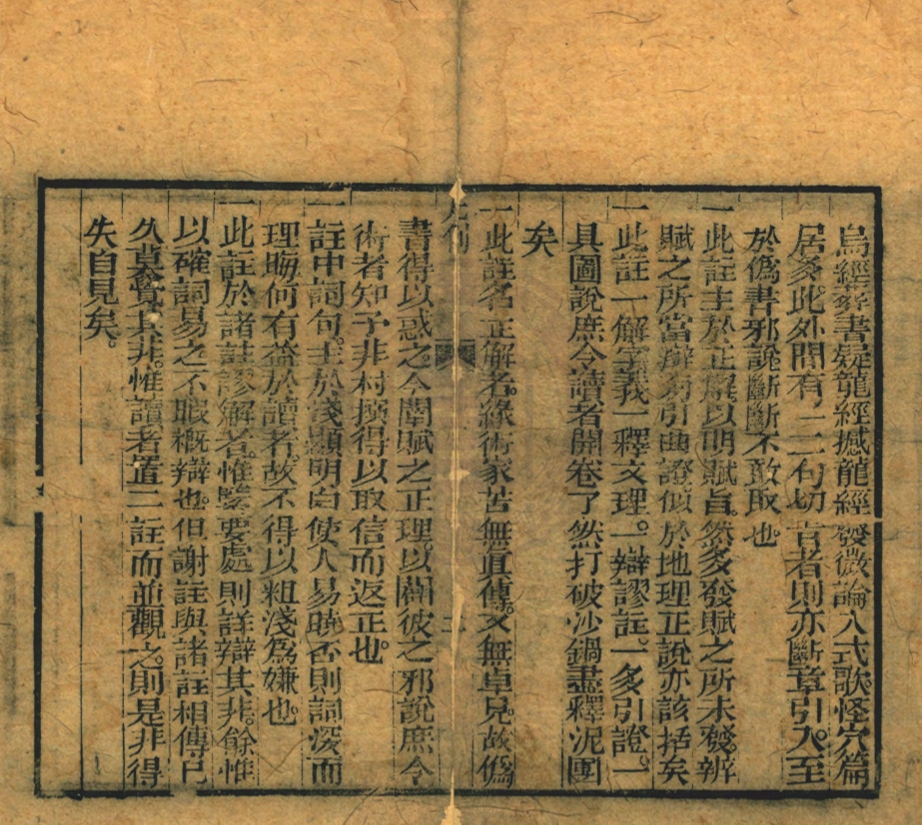 烏經葬書疑龍經撼龍經發微論入式歌怪穴篇
居多此外間有一二句切言者則亦斷章引入至
於偽書邪說斷斷不敢取也
一此註主於正解以明賦旨然多發賦之所未發辨
賦之所當辨旁引曲證似於地理正說亦該括矣
一此註一解字義一釋文理一辯謬註一多引證一
具圖說庶令讀者開卷了然打破沙鍋盡釋泥團
矣
凡例
一此註名正解者緣術家苦無真傳又無卓見故偽
書得以惑之今闡賦之正理以闢彼之邪說庶令
術者知予非杜撰得以取信而返正也
一註中詞句主於淺顯明白使人易曉否則詞深而
理晦何有益於讀者故不得以粗淺為嫌也
一此註於諸註謬解者惟鑿要處則詳辯其非餘惟
以確詞易之不暇概辯也但謝註與諸註相傳已
久莫覺其非惟讀者置二註而並觀之則是非得
失自見矣